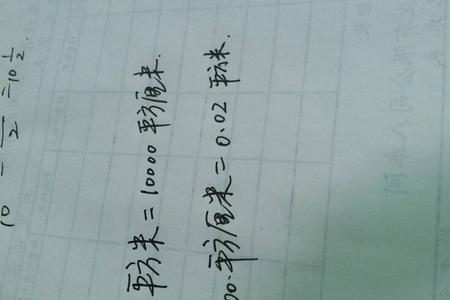 10 - /2 = 10 1/2
平方米 = 10000 平方厘米.
00. 平方厘米 = 0.02 平方米.